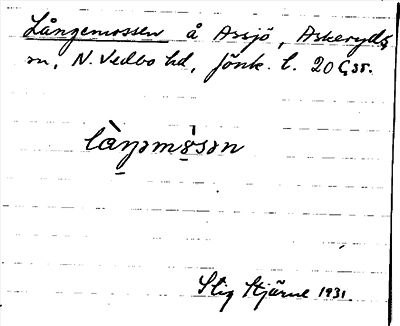 Långemossen å Assjö, Askeryds
sn, N. Vedbo hd, Jönk. l. 20 G SV.
làŋəmòsən
Stig Stjärne 1931